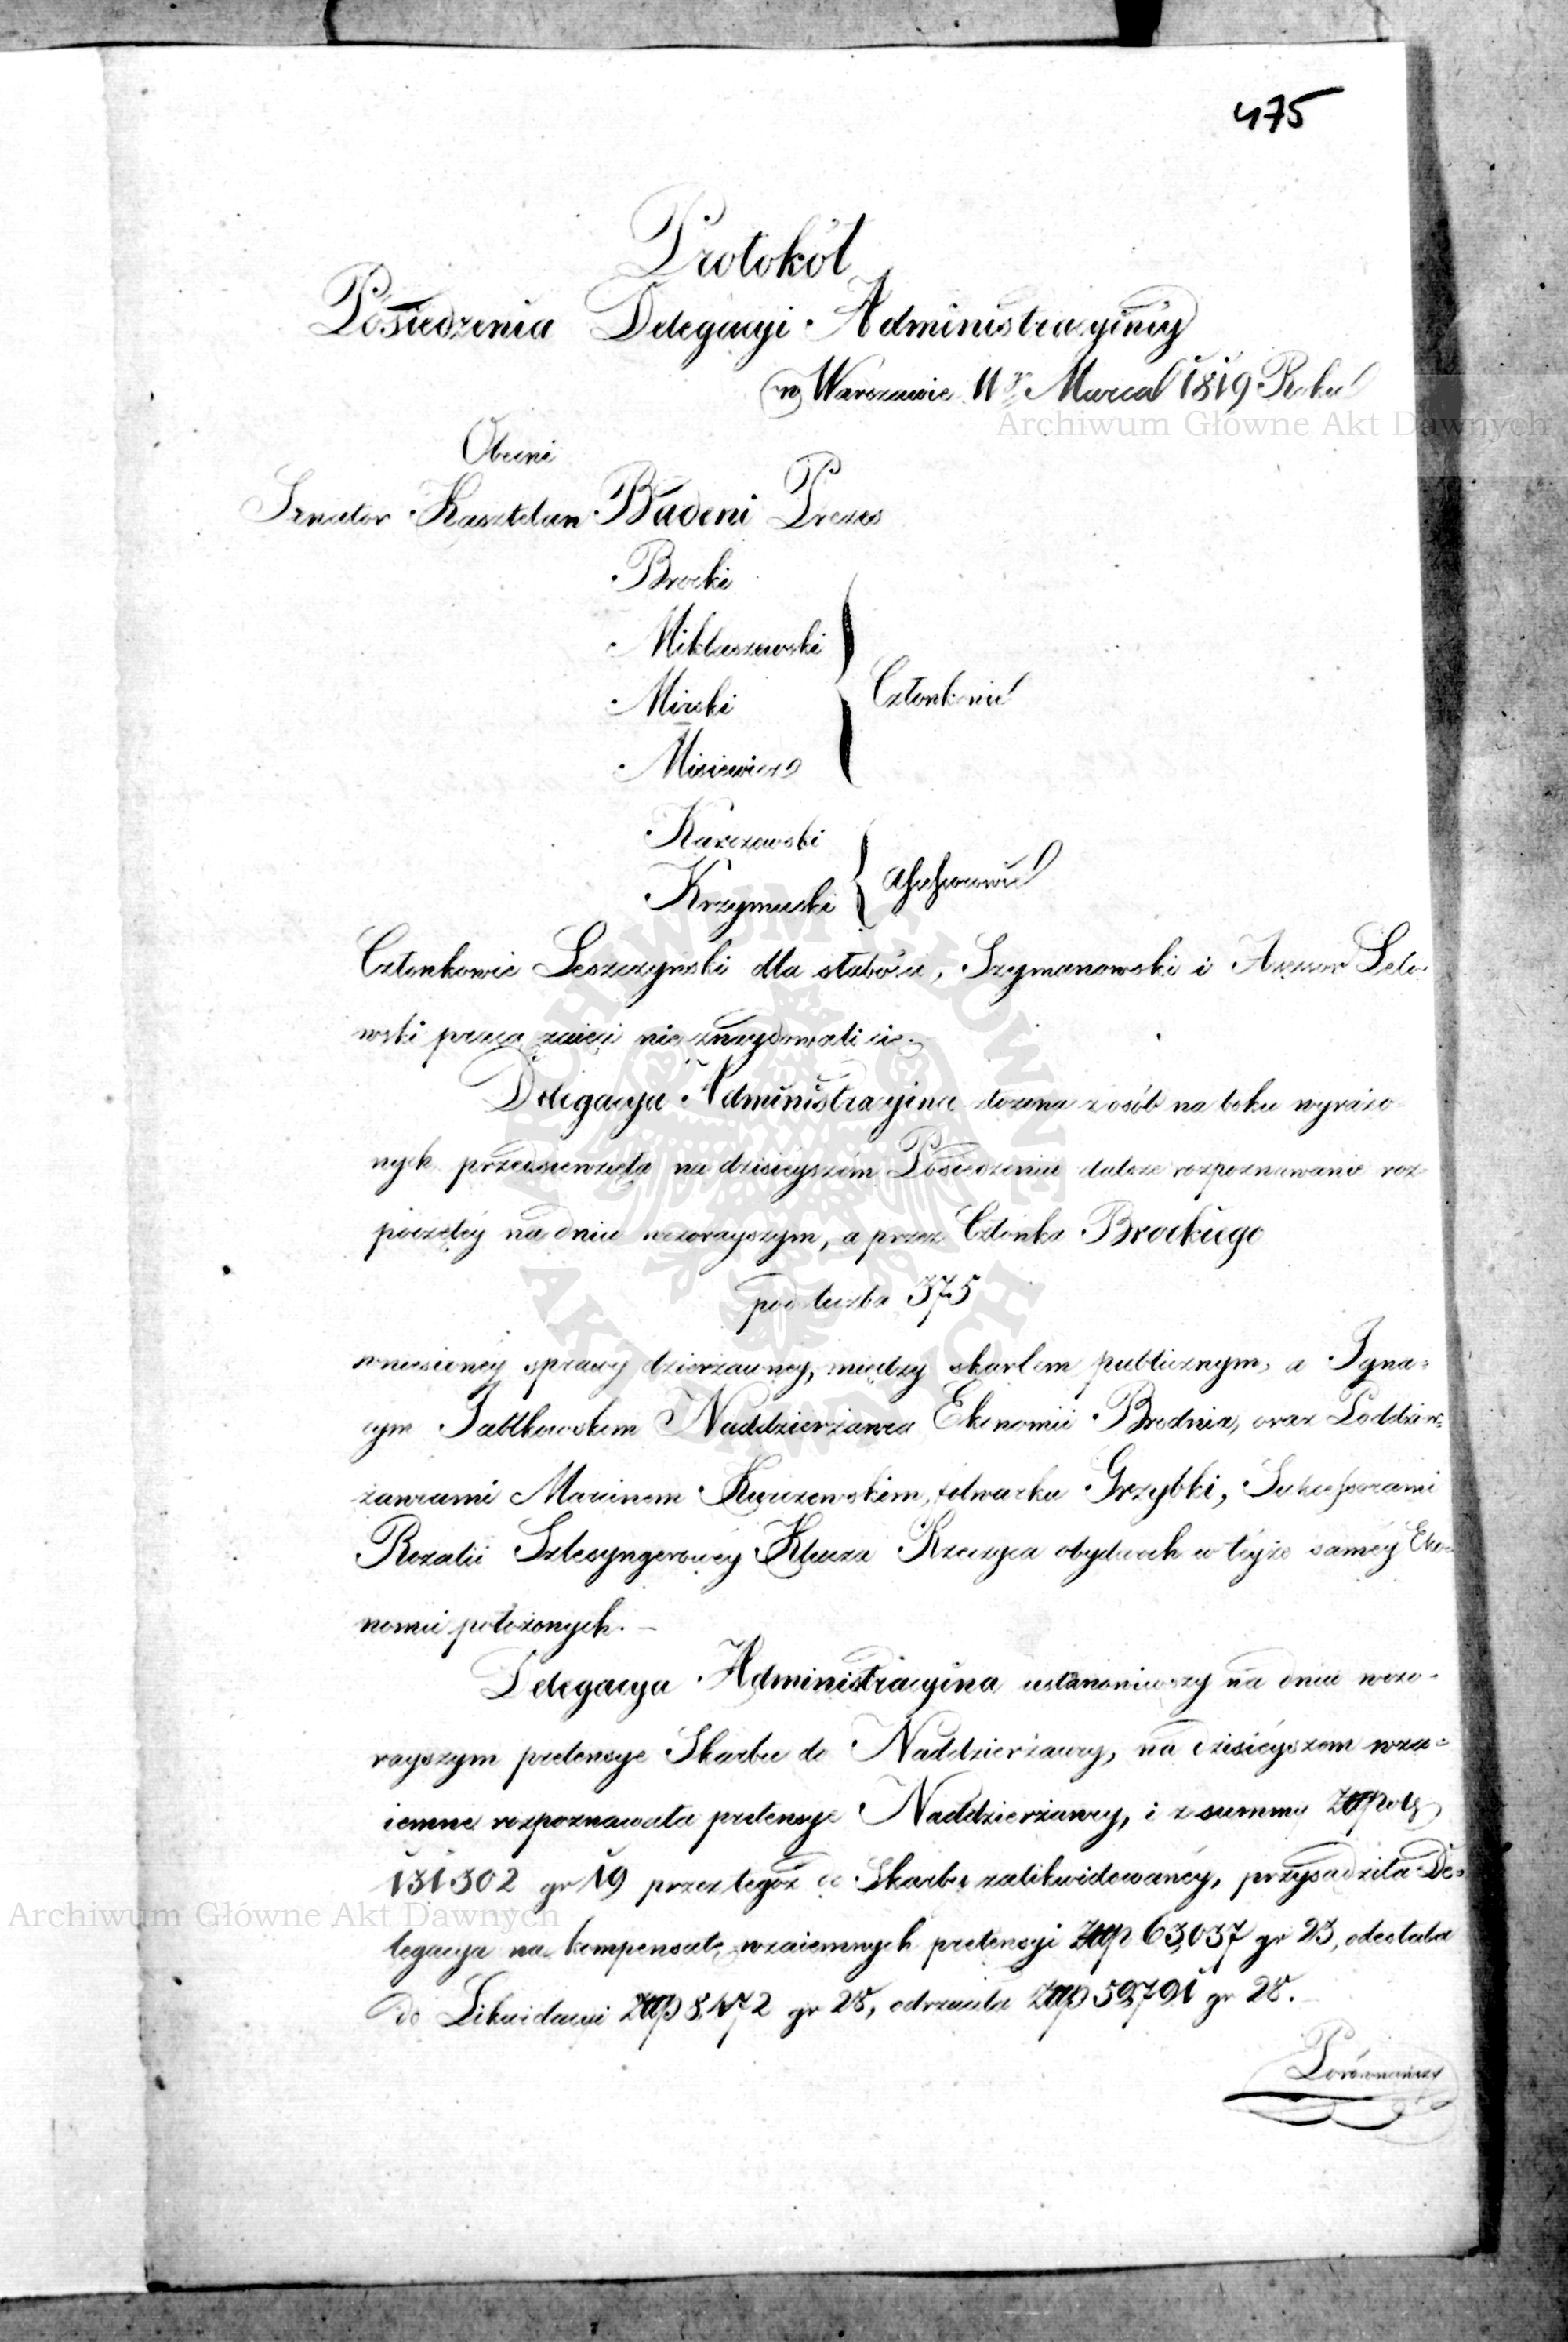 475
Protokół
Posiedzenia Delegacyi Administracyiney
w Warszawie 11go Marca 1819 Roku
Archiwum Główne Akt Dawnych
Obecni
Senator Kasztelan Badeni Prezes
Brocki
Mikłaszewski
Mirski
Członkowie
Misiewicz
Karczewski
Krzymuski
Assessorowie
Członkowie Leszczynski dla słabości, Szymanowski i Assessor Leło
wski pracą zaięci nie znaydowali się.
Delegacya Administracyina złożona z osób na boku wyrażo
nych przedsięwzięła na dzisieyszém Posiedzeniu dalsze rozpoznawanie roz
poczętéy na dniu wczorayszym, a przez Członka Brockiego
pod liczbą 375
wniesionéy sprawy dzierżawney, między skarbem publicznym, a Igna=
cym Jabłkowskim Naddzierżawcą Ekonomii Brodnia, oraz Poddzier=
żawcami Marcinem Kurczewskim, folwarku Grzybki, Sukcessorami
Rozalii Szlesyngerowéy Klucza Rzeczyca obydwóch w teyże saméy Eko=
nomii położonych. —
Delegacya Administracyina ustanowiwszy na dniu wczo=
rayszym pretensye Skarbu do Naddzierżawcy, na dzisiéyszem wza=
iemne rozpoznawała pretensye Naddzierżawcy, i z summy Złp
131302 gr 19 przez tegoż do Skarbu zalikwidowanéy, przysądziła De=
Archiwum Główne Akt Dawnych
legacya na kompensatę wzaiemnych pretensyi Złp 63,037 gr 23, odesłała
do Likwidacyi Złp 8,472 gr 28, odrzuciła Złp 59,791 gr 28.
Porównanie
ARCHIWUM GŁÓWNE AKT DAWNYCH